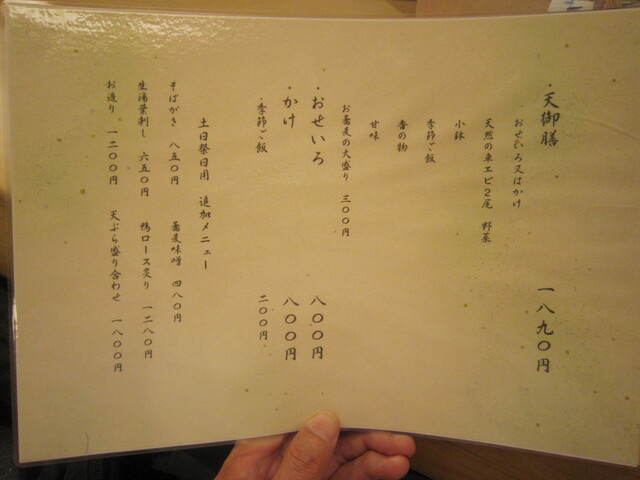 ・天御膳 一八九〇円
おせいろ又はかけ
天然の車エビ2尾 野菜
小鉢
季節ご飯
香の物
甘味
お蕎麦の大盛り 三〇〇円
・おせいろ 八〇〇円
・かけ 八〇〇円
・季節ご飯 二〇〇円
土日祭日用 追加メニュー
そばがき 八五〇円 蕎麦味噌 四八〇円
生湯葉刺し 六五〇円 鴨ロース炙り 一二八〇円
お造り 一二〇〇円 天ぷら盛り合わせ 一八〇〇円